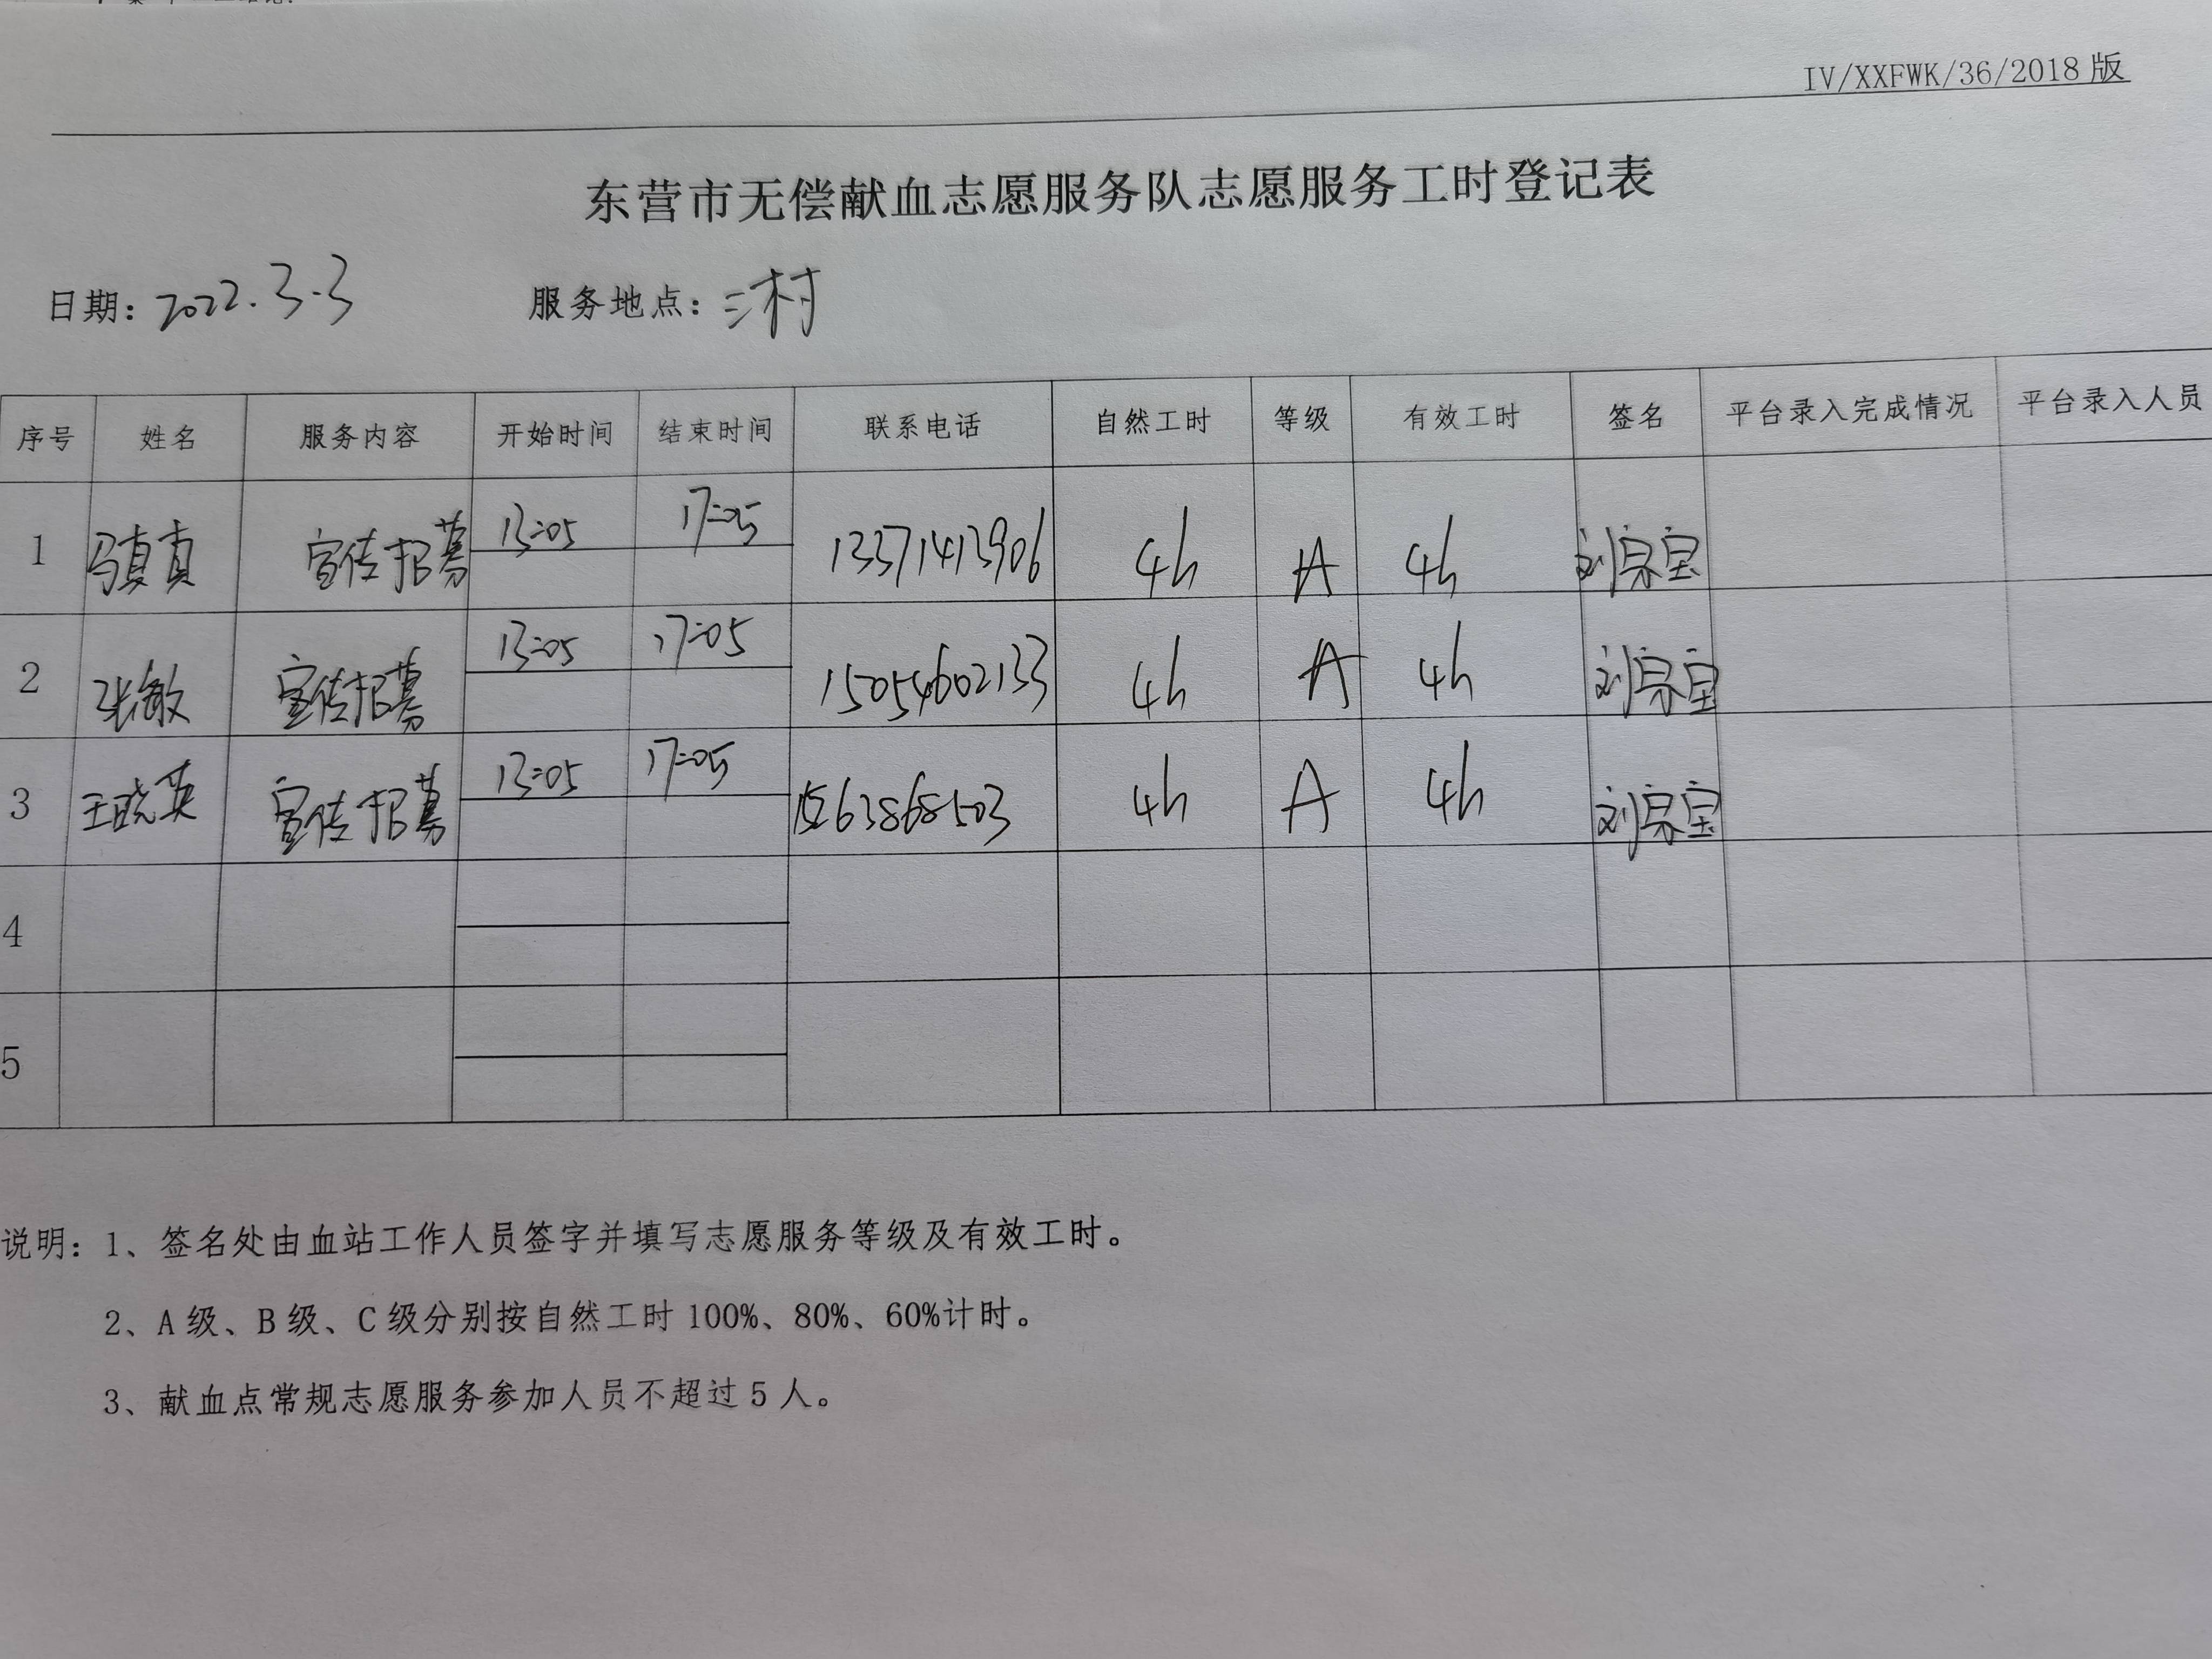 IV/XXFWK/36/2018版
东营市无偿献血志愿服务队志愿服务工时登记表
日期：2022.3.3 服务地点：三村
序号 姓名 服务内容 开始时间 结束时间 联系电话 自然工时 等级 有效工时 签名 平台录入完成情况 平台录入人员
1 马真真 宣传招募 13:05 17:05 13371413906 4h A 4h 刘宗宝
2 张敏 宣传招募 13:05 17:05 15054602133 4h A 4h 刘宗宝
3 王晓英 宣传招募 13:05 17:05 15263868503 4h A 4h 刘宗宝
4
5
说明：1、签名处由血站工作人员签字并填写志愿服务等级及有效工时。
2、A级、B级、C级分别按自然工时100%、80%、60%计时。
3、献血点常规志愿服务参加人员不超过5人。